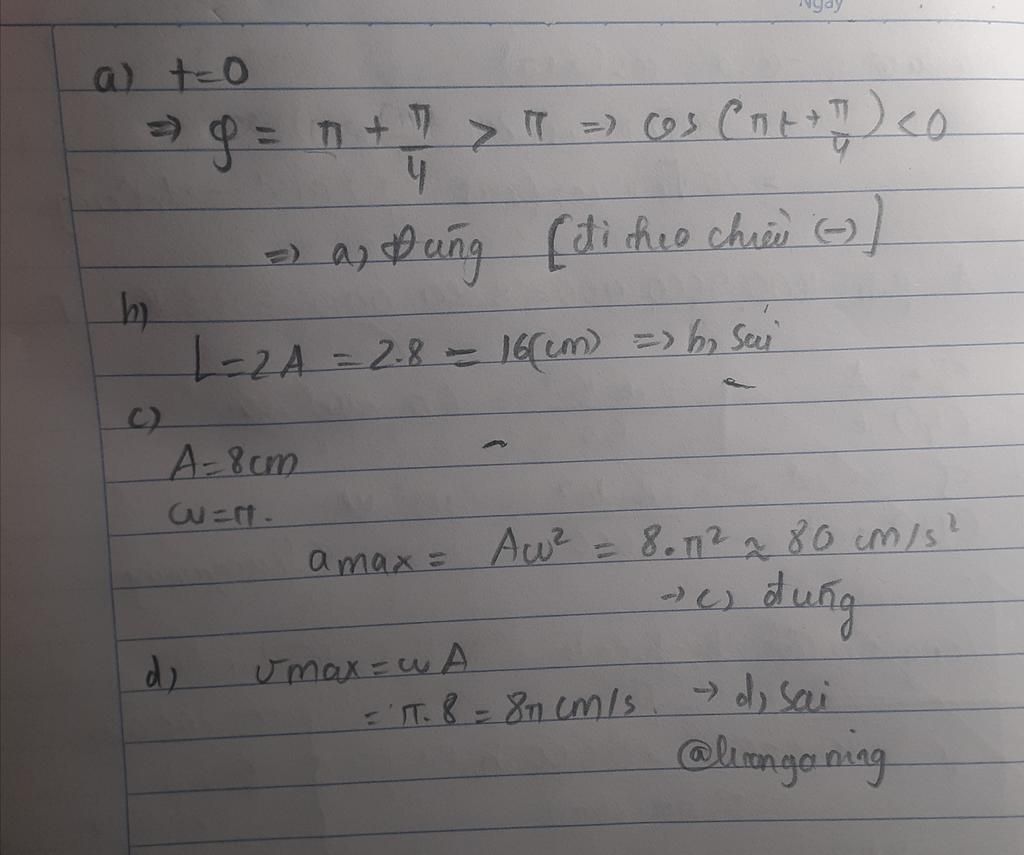 Ngày
a) t=0
=> φ = π + π/4 > π => cos (πt + π/4) < 0
=> a, Đúng [đi theo chiều (-)]
b)
L = 2A = 2.8 = 16(cm) => b, Sai
c)
A = 8cm
ω = π.
amax = Aω² = 8.π² ≈ 80 cm/s²
→ c) đúng
d, vmax = ωA
= π.8 = 8π cm/s. → d, Sai